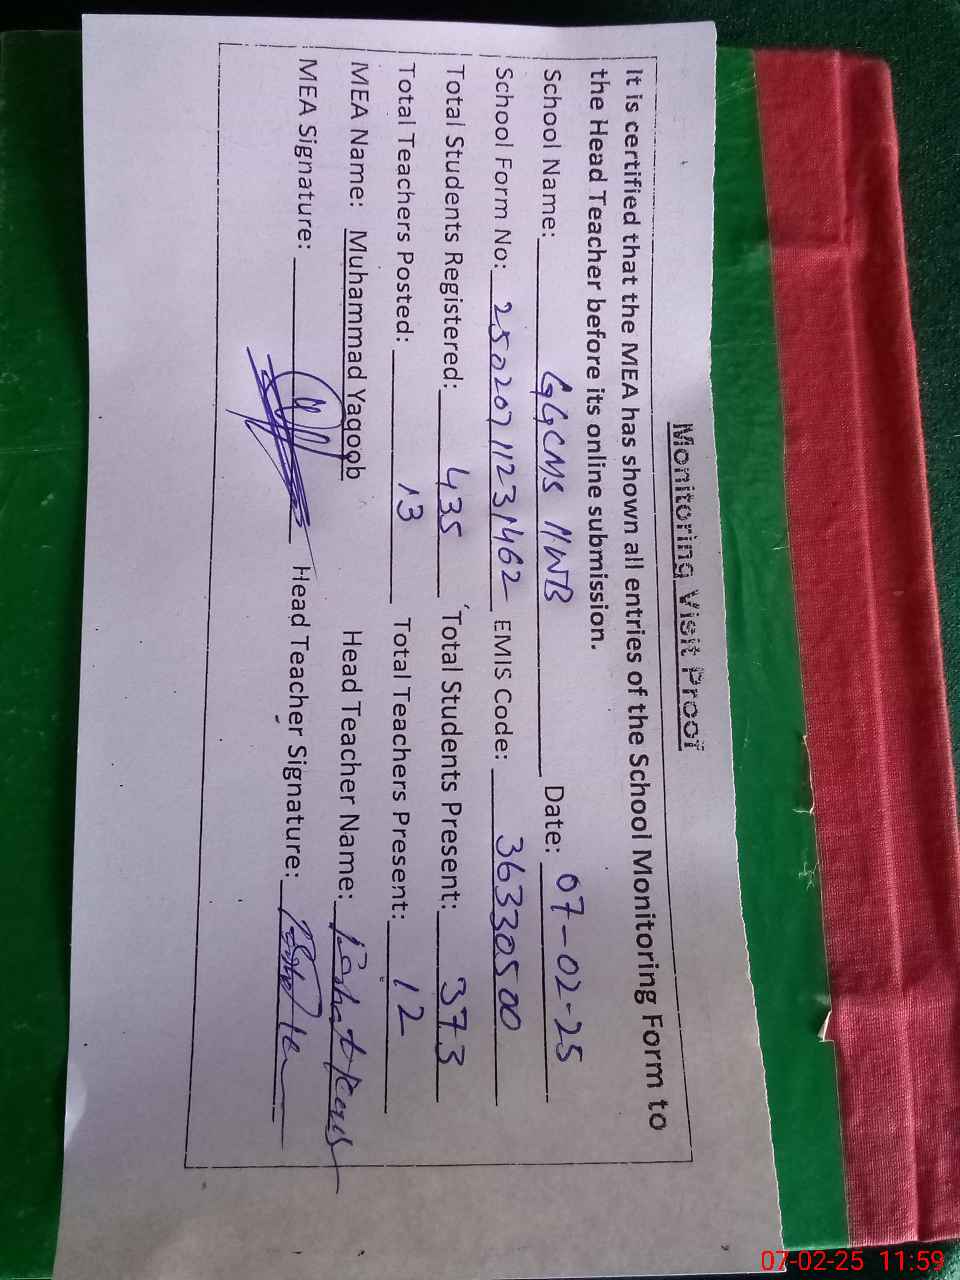 Monitoring Visit Proof
It is certified that the MEA has shown all entries of the School Monitoring Form to
the Head Teacher before its online submission.
School Name: GGCMS MWB Date: 07-02-25
School Form No: 25020711231462 EMIS Code: 36330500
Total Students Registered: 435 Total Students Present: 373
Total Teachers Posted: 13 Total Teachers Present: 12
MEA Name: Muhammad Yaqoob Head Teacher Name:
MEA Signature: Head Teacher Signature:
07-02-25 11:59